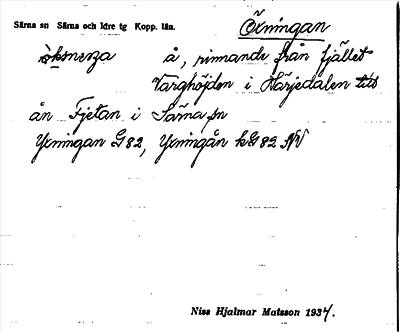 Särna sn Särna och Idre tg Kopp. län.
Öxningan
öksnenga å, rinnande från fjället
Varghöjden i Härjedalen till
ån Fjetan i Särna sn
Yxningan G82, Yxningån kG82 NV
Niss Hjalmar Matsson 1934.